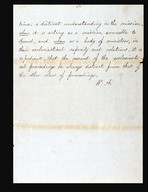 tions, a distinct understanding in the mission,
when it is acting as a mission, amenable to
Board, and when as a body of ministers, in
their ecclesiastical capacity and relations, it is
important, that the record of the ecclesiasti-
cal proceedings be always distinct from that of
the other class of proceedings.